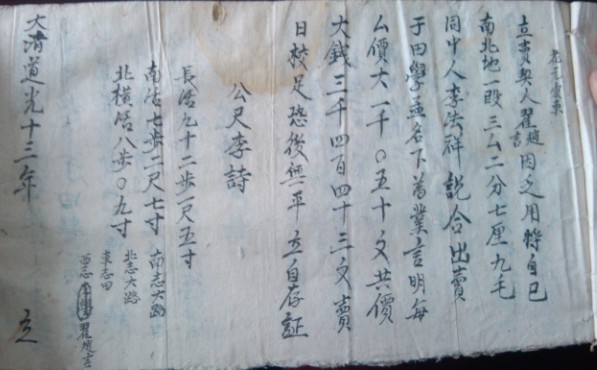 立賣契人翟趙吉因乏用將自己
南北地一段三厶二分七厘九毛
同中人李法祥說合出賣
于田學孟名下為業言明每
厶價大一千〇五十文共價
大錢三千四百四十三文賣
日校足恐後無平立自存証
公尺李詩
長活九十二步一尺五寸
南活七步二尺七寸
北橫活八步〇九寸
南志大路
北志大路
東志田
西志翟趙吉
大清道光十三年 立